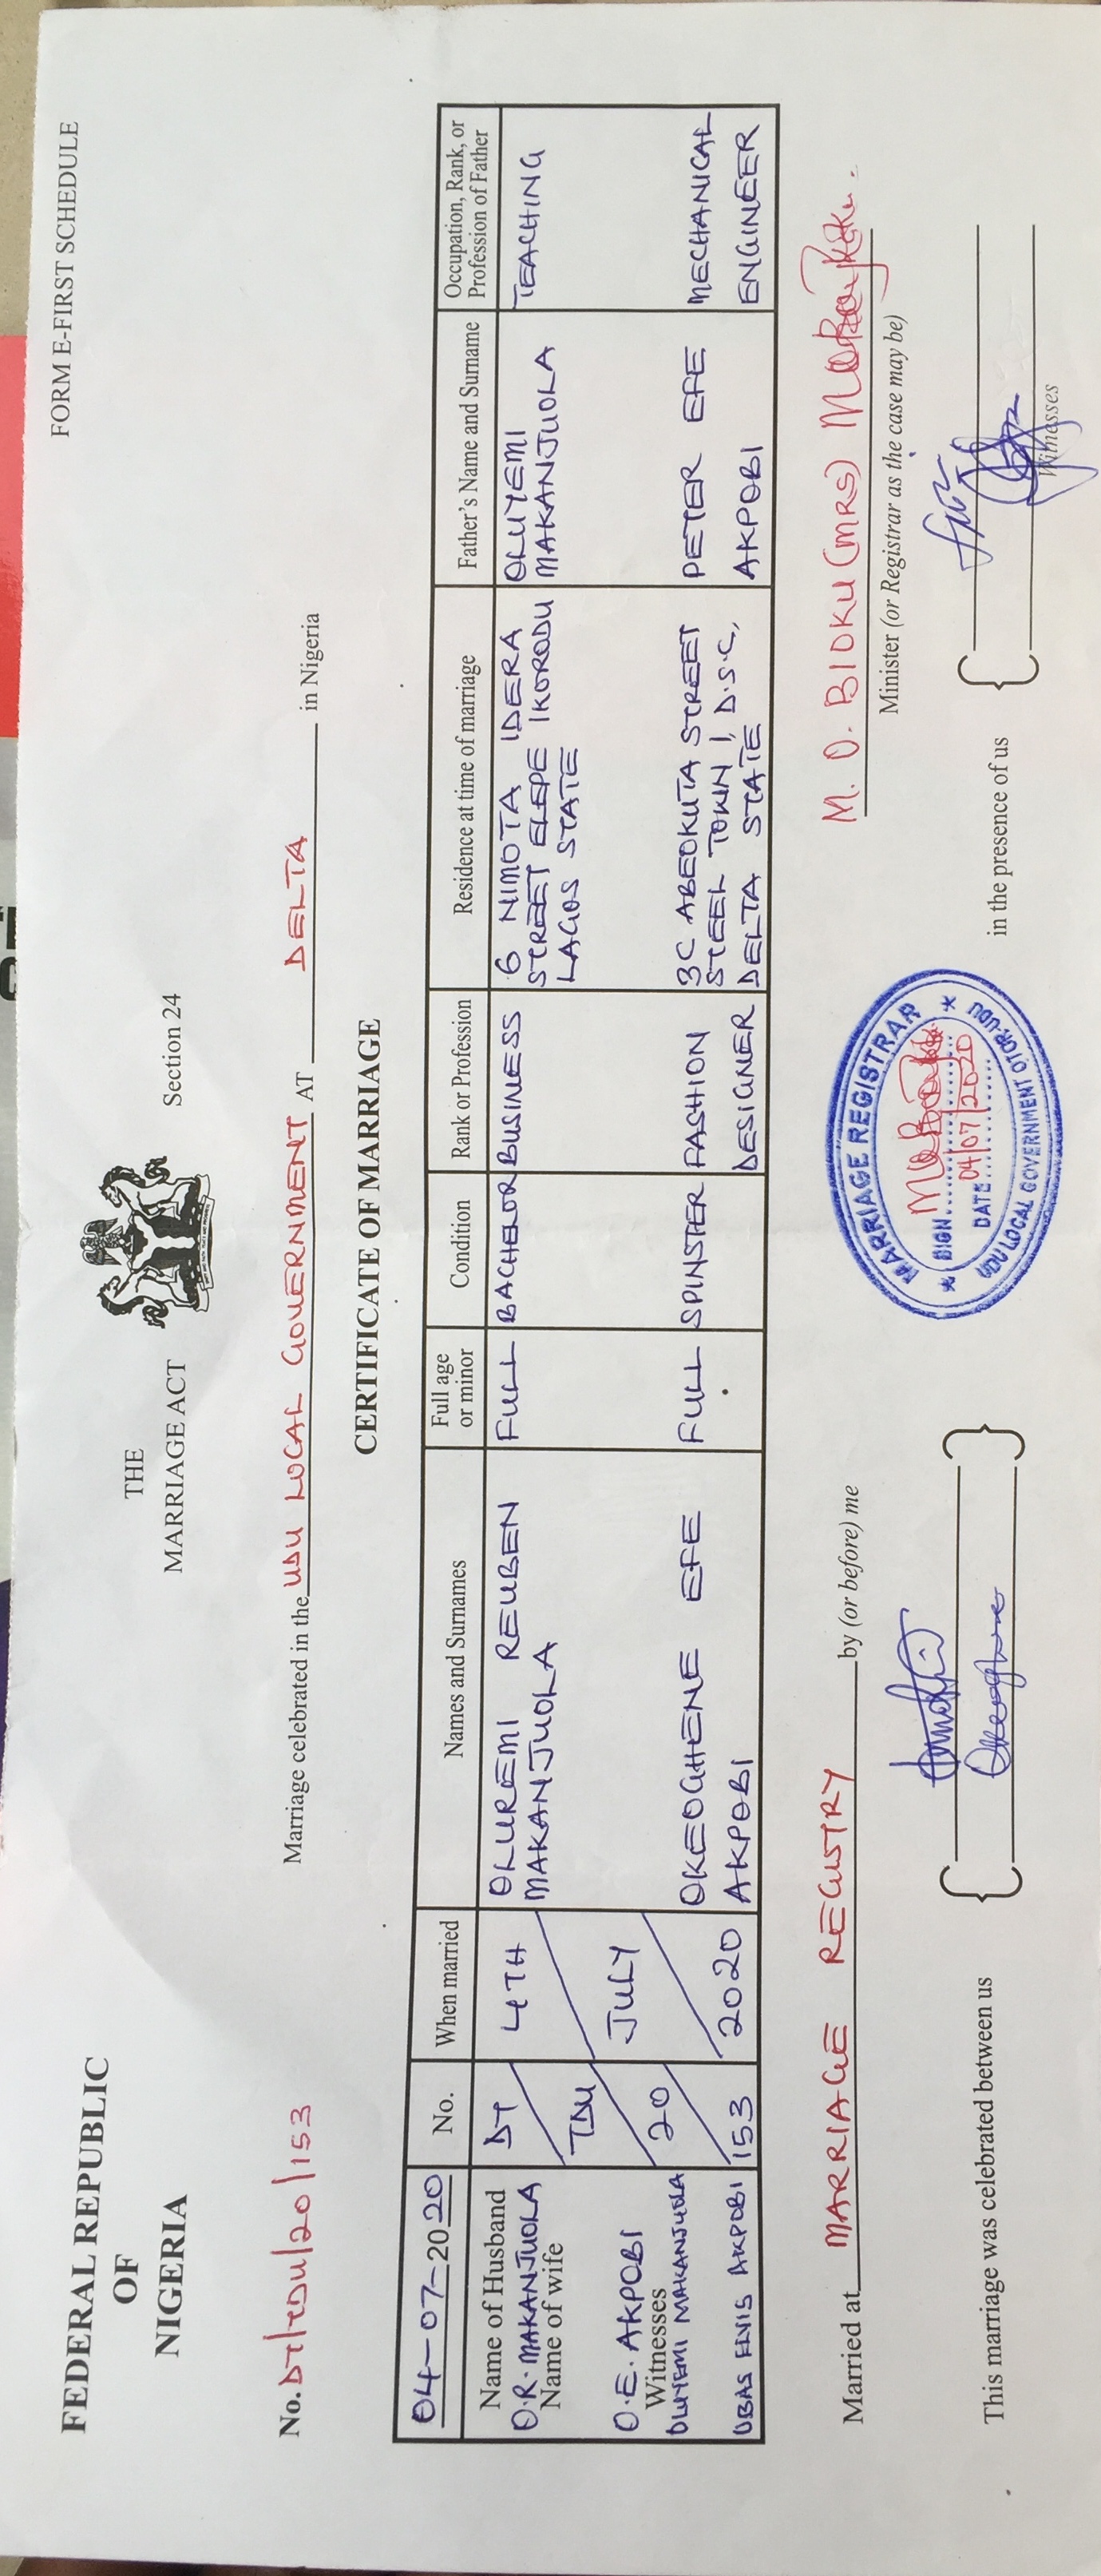 FORM E-FIRST SCHEDULE
FEDERAL REPUBLIC
OF
NIGERIA
THE
MARRIAGE ACT
Section 24
No. DT/TDU/20/153
Marriage celebrated in the UDU LOCAL GOVERNMENT AT DELTA in Nigeria
CERTIFICATE OF MARRIAGE
04-07-2020
No.
When married
Names and Surnames
Full age
or minor
Condition
Rank or Profession
Residence at time of marriage
Father's Name and Surname
Occupation, Rank, or
Profession of Father
Name of Husband
O.R. MAKANJUOLA
Name of wife
O.E. AKPOBI
Witnesses
OLUYEMI MAKANJUOLA
UBAS ENIS AKPOBI
DT
TDU
20
153
4TH
JULY
2020
OLUREMI REUBEN
MAKANJUOLA
FULL
BACHELOR
BUSINESS
6 NIMOTA IDERA
STREET ELEPE IKORODU
LAGOS STATE
OLUYEMI
MAKANJUOLA
TEACHING
OKEOGHENE EFE
AKPOBI
FULL
SPINSTER
FASHION
DESIGNER
3C ABEOKUTA STREET
STEEL TOWN 1, D.S.C,
DELTA STATE
PETER EFE
AKPOBI
MECHANICAL
ENGINEER
Married at MARRIAGE REGISTRY by (or before) me
M. O. BIOKU (MRS)
Minister (or Registrar as the case may be)
MARRIAGE REGISTRAR
SIGN
DATE 04/07/2020
UDU LOCAL GOVERNMENT OTOR-UDU
This marriage was celebrated between us
in the presence of us
Witnesses